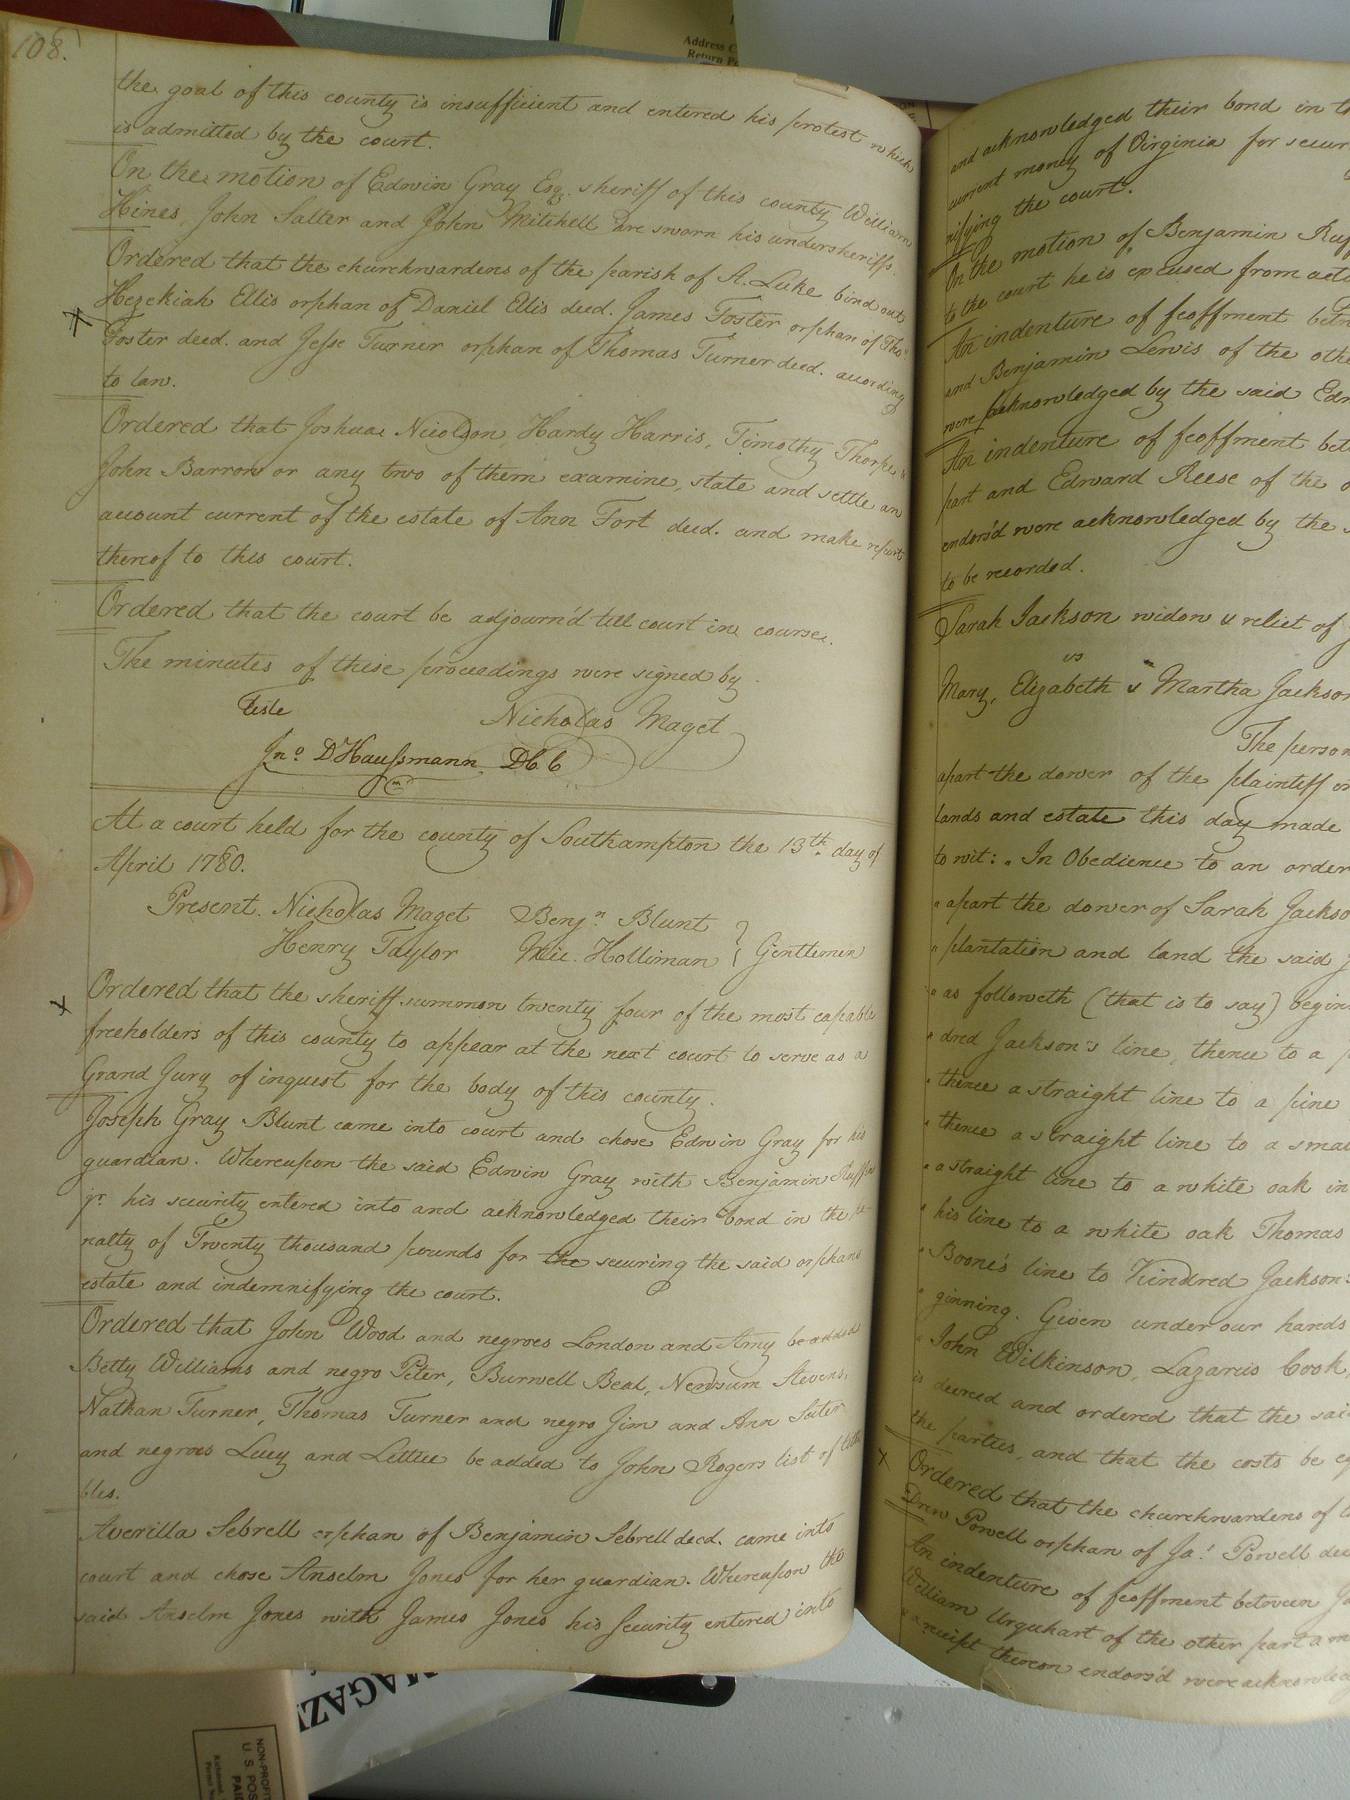 108.
the goal of this county is insufficient and entered his protest which
is admitted by the court.
On the motion of Edwin Gray Esq. sheriff of this county William
Hines, John Salter and John Mitchell are sworn his undersheriffs.
Ordered that the churchwardens of the parish of St. Luke bind out
Hezekiah Ellis orphan of Daniel Ellis decd. James Foster orphan of Thos.
Foster decd. and Jesse Turner orphan of Thomas Turner decd. according
to law.
Ordered that Joshua Nicolson Hardy Harris, Timothy Thorpe &
John Barrow or any two of them examine, state and settle an
account current of the estate of Ann Fort decd. and make report
thereof to this court.
Ordered that the court be adjourn'd till court in course.
The minutes of these proceedings were signed by
Teste
Nicholas Maget
Jno. D Haussmann DCC
At a court held for the county of Southampton the 13th. day of
April 1780.
Present. Nicholas Maget Benjn. Blunt
Henry Taylor Mic. Holliman } Gentlemen
Ordered that the sheriff summon twenty four of the most capable
freeholders of this county to appear at the next court to serve as a
Grand Jury of inquest for the body of this county.
Joseph Gray Blunt came into court and chose Edwin Gray for his
guardian. Whereupon the said Edwin Gray with Benjamin Ruffin
jr. his security entered into and acknowledged their bond in the pe-
nalty of Twenty thousand pounds for the securing the said orphans
estate and indemnifying the court.
Ordered that John Wood and negroes London and Amy be added
Betty Williams and negro Peter, Burwell Beal, Newsum Stevens,
Nathan Turner, Thomas Turner and negro Jim and Ann
and negroes Lucy and Lettice be added to John Rogers list of tith
bles.
Averilla Sebrell orphan of Benjamin Sebrell decd. came into
court and chose Anselm Jones for her guardian. Whereupon the
said Anselm Jones with James Jones his Security entered into
and acknowledged their bond in
current money of Virginia for secur
nifying the court.
On the motion of Benjamin Ruf
to the court he is excused from
An indenture of feoffment betw
and Benjamin Lewis of the othe
were acknowledged by the said Edw
An indenture of feoffment bet
part and Edward Reese of the o
endors'd were acknowledged by the
to be recorded.
Sarah Jackson widow & relict of
vs
Mary, Elizabeth & Martha Jackson
The person
apart the dower of the plaintiff
lands and estate this day made
to wit: "In Obedience to an order
" apart the dower of Sarah Jackso
" plantation and land the said
" as followeth (that is to say) begin
" dred Jackson's line, thence to a
" thence a straight line to a pine
" thence a straight line to a smal
" a straight line to a white oak in
" his line to a white oak Thomas
" Boone's line to Kindred Jackson's
" ginning. Given under our hands
" John Wilkinson, Lazarus Cook,
is decreed and ordered that the sai
the parties, and that the costs be
Ordered that the churchwardens of
Drew Powell orphan of Ja: Powell dec
An indenture of feoffment between
William Urquhart of the other part
a receipt thereon endors'd were acknowled
Address C
Return Po
MAGAZ
NON-PROFIT
U S POS
PAID